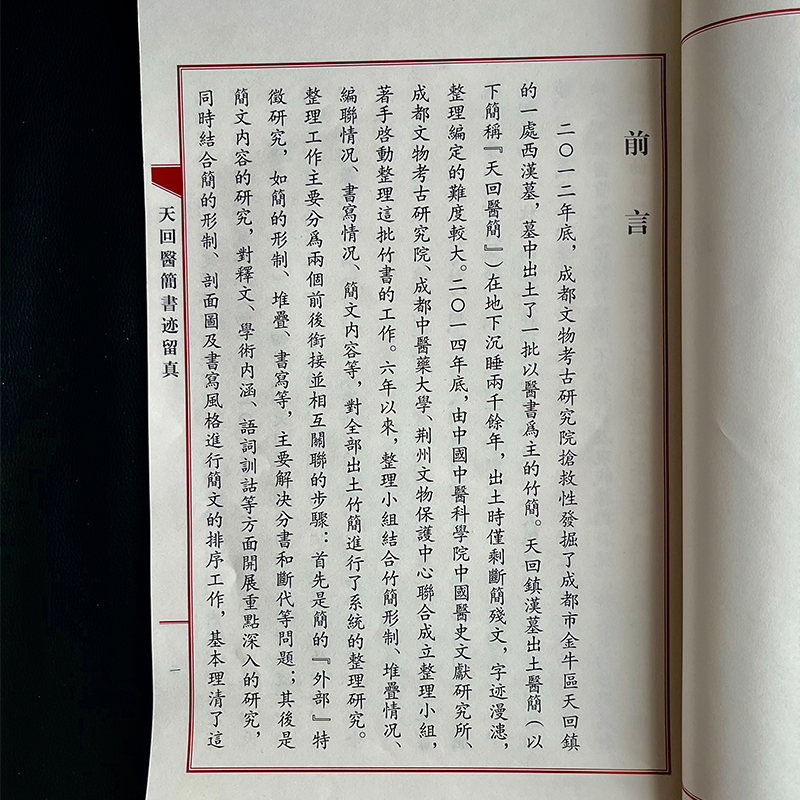 前言
二〇一二年底，成都文物考古研究院搶救性發掘了成都市金牛區天回鎮
的一處西漢墓，墓中出土了一批以醫書爲主的竹簡。天回鎮漢墓出土醫簡（以
下簡稱『天回醫簡』）在地下沉睡兩千餘年，出土時僅剩斷簡殘文，字迹漫漶，
整理編定的難度較大。二〇一四年底，由中國中醫科學院中國醫史文獻研究所、
成都文物考古研究院、成都中醫藥大學、荆州文物保護中心聯合成立整理小組，
著手啓動整理這批竹書的工作。六年以來，整理小組結合竹簡形制、堆疊情况、
編聯情况、書寫情况、簡文内容等，對全部出土竹簡進行了系統的整理研究。
整理工作主要分爲兩個前後銜接並相互關聯的步驟：首先是簡的『外部』特
徵研究，如簡的形制、堆疊、書寫等，主要解决分書和斷代等問題；其後是
簡文内容的研究，對釋文、學術内涵、語詞訓詁等方面開展重點深入的研究，
同時結合簡的形制、剖面圖及書寫風格進行簡文的排序工作，基本理清了這
天回醫簡書迹留真
一